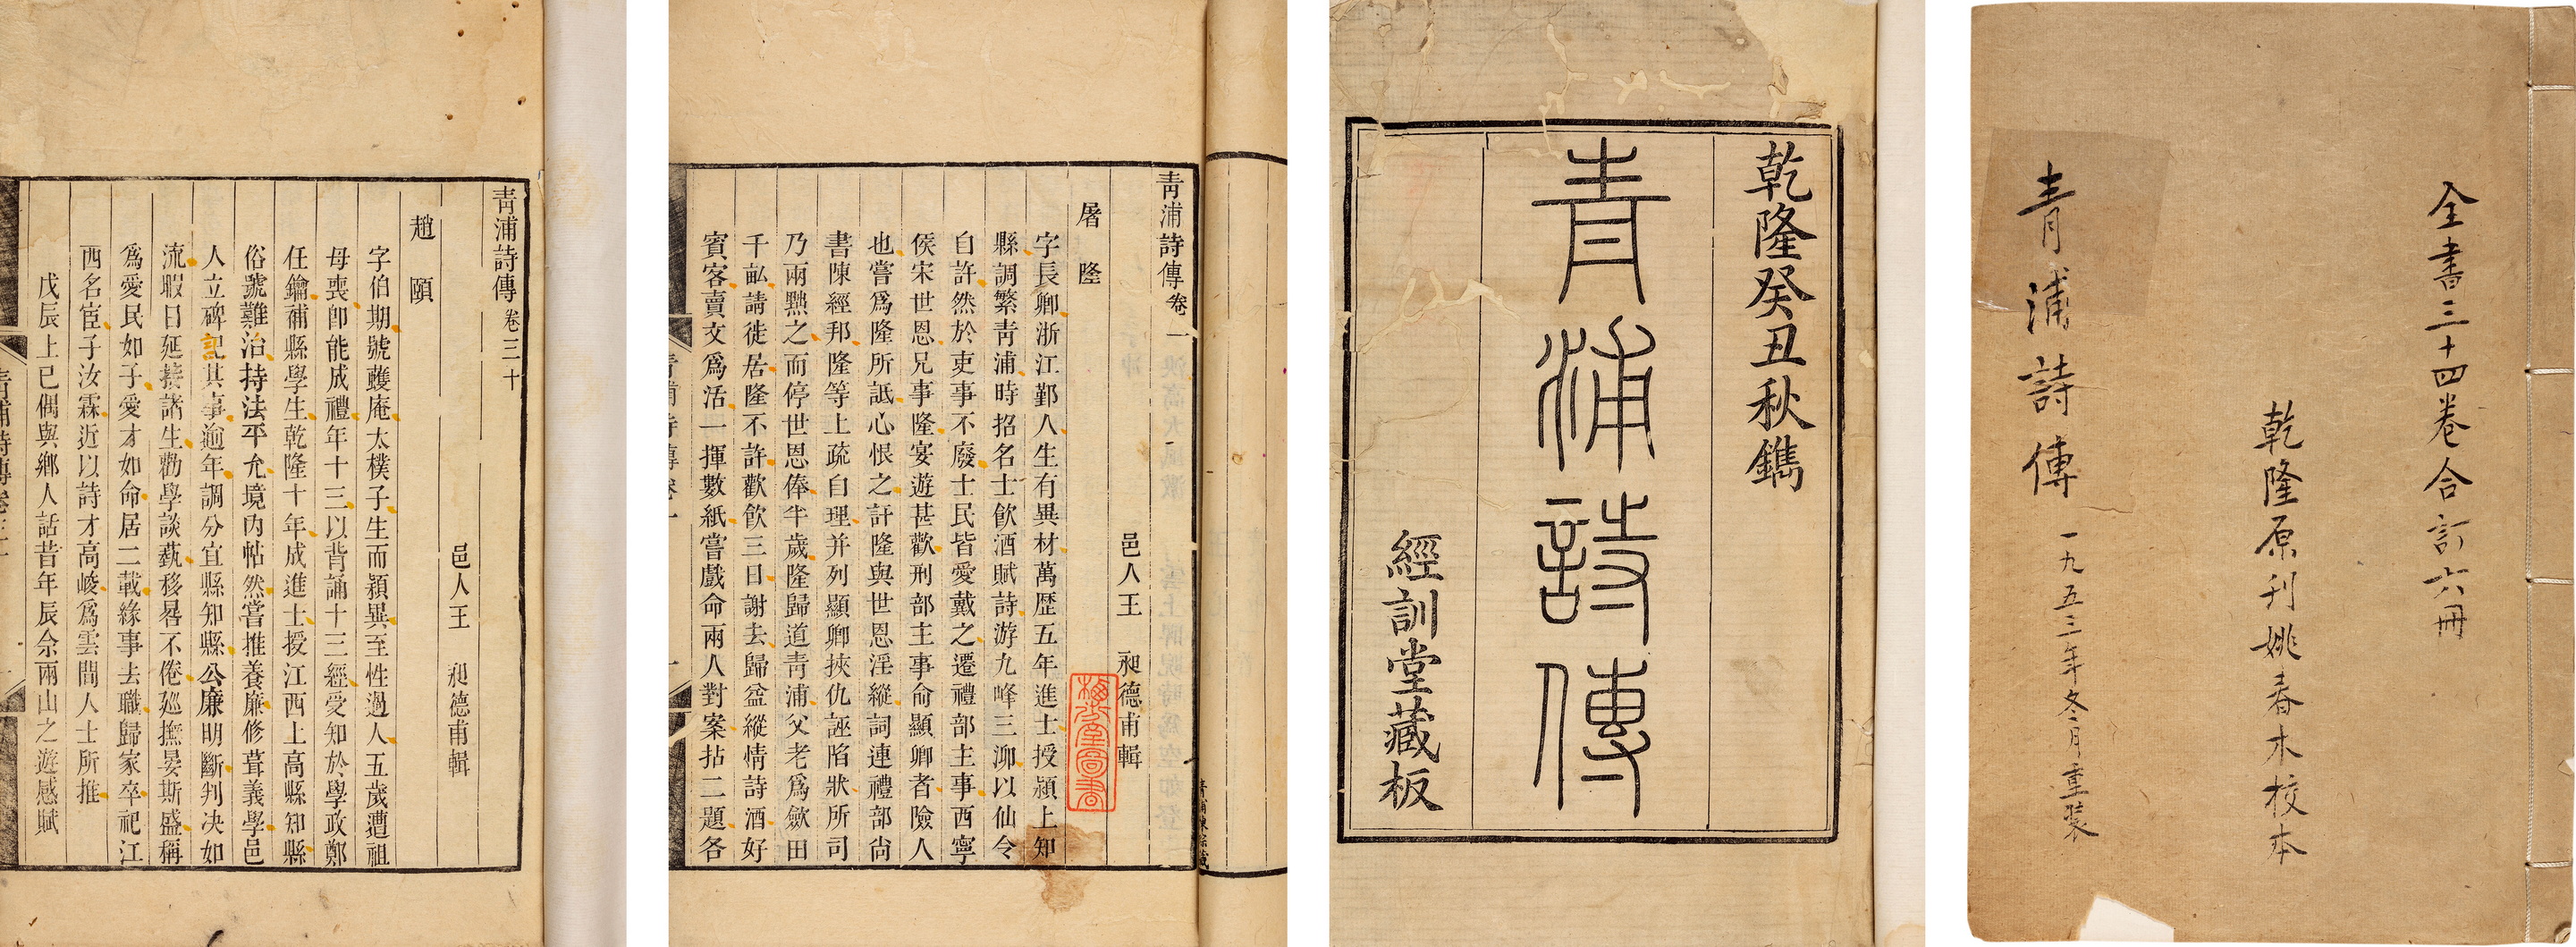 全書三十四卷合訂六冊
乾隆原刊姚春木校本
青浦詩傳
一九五三年冬月重裝
乾隆癸丑秋鐫
青浦詩傳
經訓堂藏板
青浦詩傳卷一
邑人王 昶德甫輯
屠 隆
字長卿浙江鄞人生有異材萬歷五年進士授潁上知
縣調繁青浦時招名士飲酒賦詩游九峰三泖以仙令
自許然於吏事不廢士民皆愛戴之遷禮部主事西寧
侯宋世恩兄事隆宴遊甚歡刑部主事俞顯卿者險人
也嘗爲隆所詆心恨之訐隆與世恩淫縱詞連禮部尙
書陳經邦隆等上疏自理并列顯卿挾仇誣陷狀所司
乃兩黜之而停世恩俸半歲隆歸道青浦父老爲斂田
千畝請徙居隆不許歡飮三日謝去歸益縱情詩酒好
賓客賣文爲活一揮數紙嘗戲命兩人對案拈二題各
青浦詩傳卷三十
邑人王 昶德甫輯
趙 頤
字伯期號蠖庵太樸子生而穎異至性過人五歲遭祖
母喪卽能成禮年十三以背誦十三經受知於學政鄭
任鑰補縣學生乾隆十年成進士授江西上高縣知縣
俗號難治持法平允境內帖然嘗推養廉修葺義學邑
人立碑記其事逾年調分宜縣知縣公廉明斷判决如
流暇日延接諸生勸學談藝移晷不倦廵撫晏斯盛稱
爲愛民如子愛才如命居二載緣事去職歸家卒祀江
西名宦子汝霖近以詩才高峻爲雲間人士所推
戊辰上巳偶與鄉人話昔年辰佘兩山之遊感賦